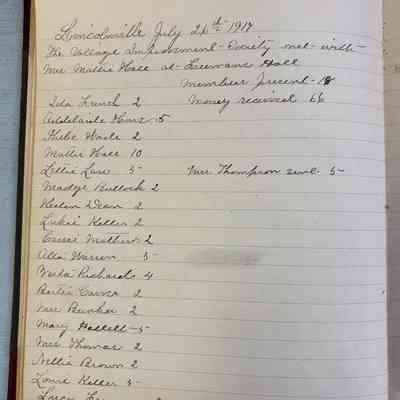 Lincolnville July 26th 1917
The Village Improvement Society met with
Mrs Mattie Hall at Freemans Hall
Members present 18
Ida French 2 Money received 66
Addelaide 5
Phebe Wade 2
Mattie Hall 10
Lettie Lane 5 Mrs Thompson sent 5
Madge Bullock 2
Helen Dean 2
Keller 2
Carrie Mathews 2
Alla Warren 5
Richards 4
Bertie Carver 2
Mrs Bunker 2
Mary Hallell 5
Mrs Thomas 2
Nellie Brown 2
Keller 5
Lucy